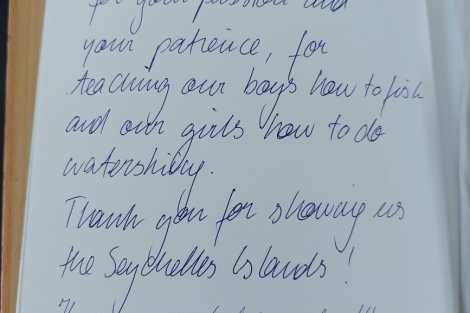 for your passion and
your patience, for
teaching our boys how to fish
and our girls how to do
waterskiing.
Thank you for showing us
the Seychelles Islands!